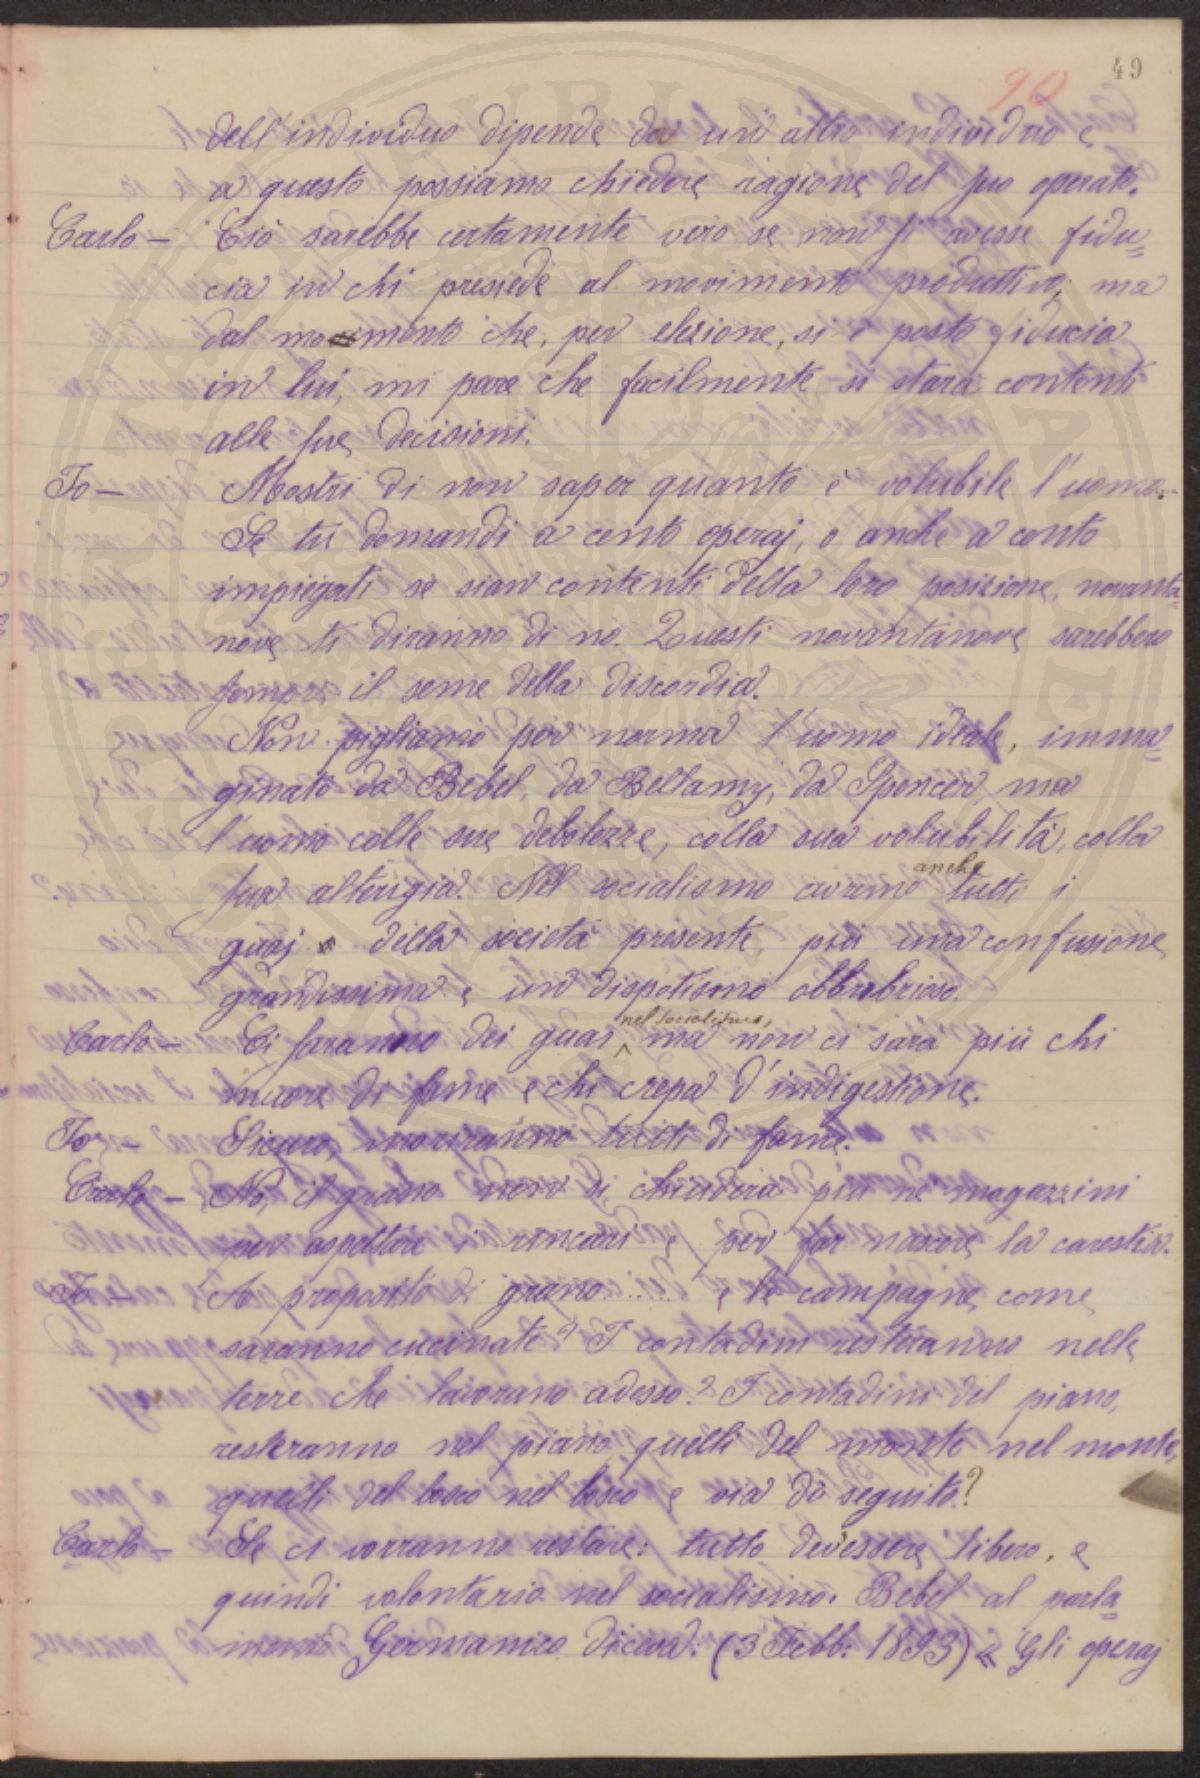 49
90
dell'individuo dipende da un'altro individuo e
a questo possiamo chiedere ragione del suo operato.
Carlo — Ciò sarebbe certamente vero se non si avesse fidu=
cia in chi presiede al movimento produttivo; ma
dal momento che, per elezione, si è posto fiducia
in lui, mi pare che facilmente si starà contenti
alle sue decisioni.
Io — Mostri di non saper quanto è volubile l'uomo.
Se tu domandi a cento operaj, o anche a cento
impiegati se sian contenti della loro posizione, novanta=
nove ti diranno di no. Questi novantanove sarebbero
sempre il seme della discordia.
Non pigliamo per norma l'uomo ideale, imma=
ginato da Bebel, da Bellamy, da Spencer, ma
l'uomo colle sue debolezze, colla sua volubilità, colla
sua alterigia. Nel socialismo avremo anche tutti i
guaj della società presente, più una confusione
grandissima e un dispotismo obbrobrioso.
Carlo — Ci saranno dei guai nel socialismo, ma non ci sarà più chi
muore di fame e chi crepa d'indigestione.
Io — Sicuro, moriranno tutti di fame.
Carlo — No, il grano non si chiuderà più ne' magazzini
per aspettare i rincari e per far nascere la carestia.
Io — A proposito di grano ..... e le campagne come
saranno cucinate? I contadini resteranno nelle
terre che lavorano adesso? I contadini del piano,
resteranno nel piano quelli del monte nel monte,
quelli del bosco nel bosco e via di seguito?
Carlo — Se ci vorranno restare: tutto dev'essere libero, e
quindi volontario nel socialismo. Bebel al parla=
mento Germanico diceva: (3 Febb: 1893) « Gli operaj